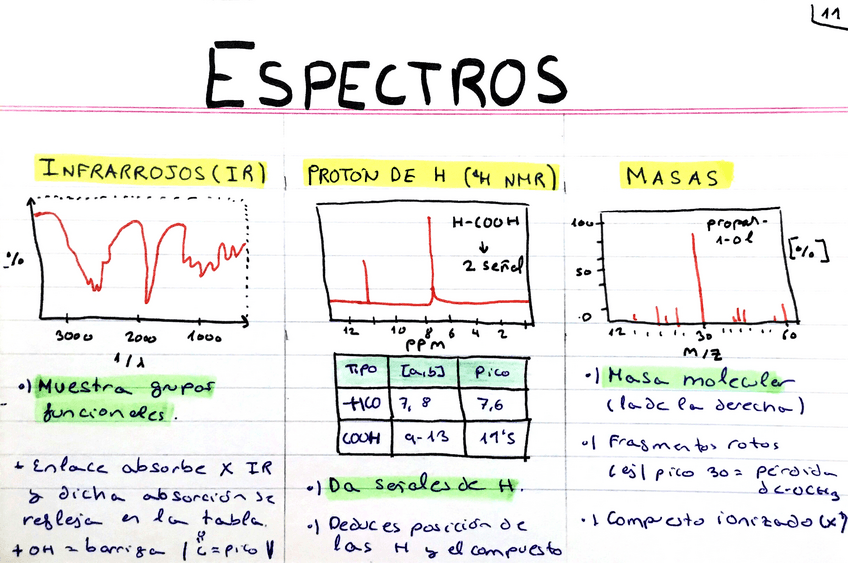 11
ESPECTROS
INFRARROJOS (IR)
%
3000 2000 1000
1/λ
·) Muestra grupos
funcionales.
+ Enlace absorbe X IR
y dicha absorción se
refleja en la tabla.
+ OH = barriga / C = pico V
PROTON DE H (¹H NMR)
H-COOH
↓
2 señal
12 10 8 6 4 2
PPM
TIPO [a,b] PICO
HCO 7,8 7,6
COOH 9-13 11'5
·) Da señales de H.
·) Deduces posición de
las H y el compuesto
MASAS
propan-
1-ol
[%]
100
50
0
12 30 60
M/Z
·) Masa molecular
(la de la derecha)
·) Fragmentos rotos
(ej/ pico 30 = pérdida
de -OCH3
·) Compuesto ionizado (x⁺)